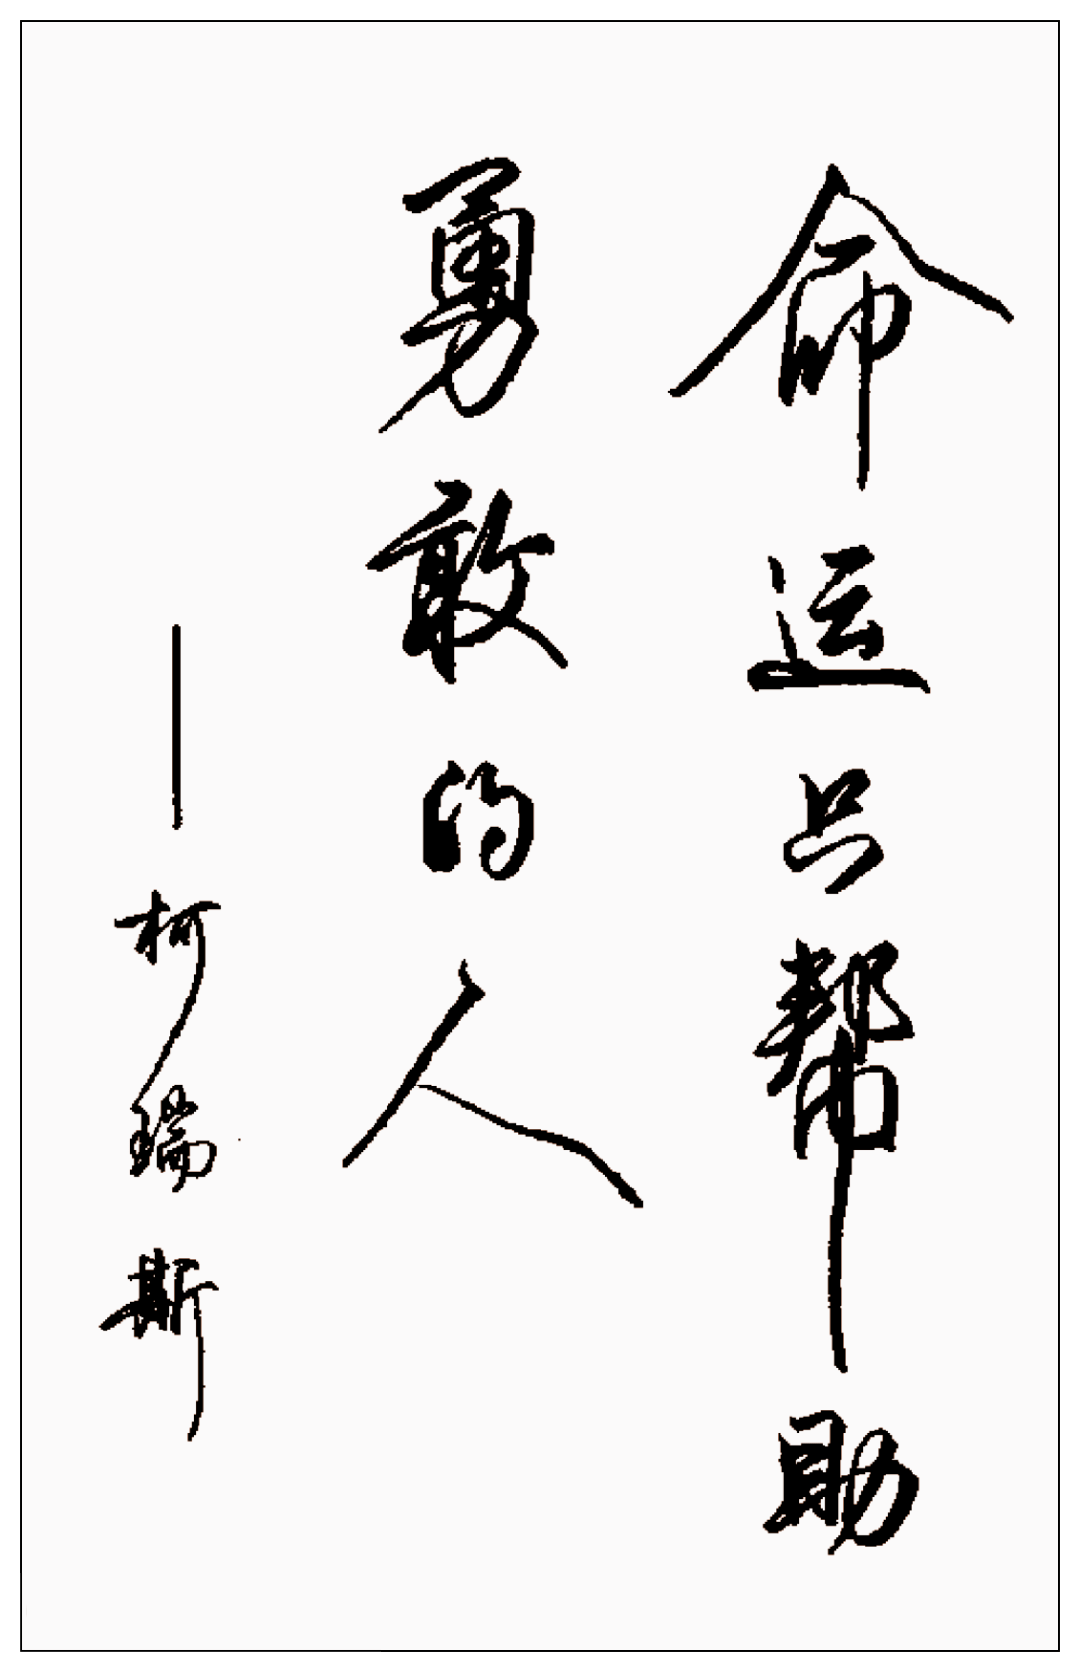 命运只帮助
勇敢的人
——柯瑞斯